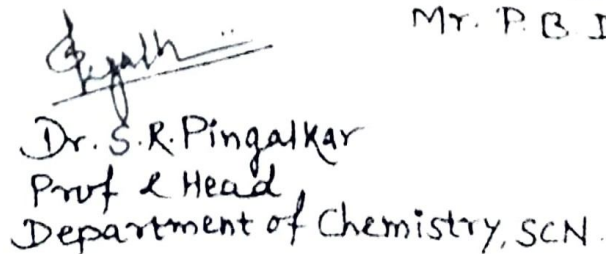 Mr. P. B. I
Dr. S. R. Pingalkar
Prof & Head
Department of Chemistry, SCN.